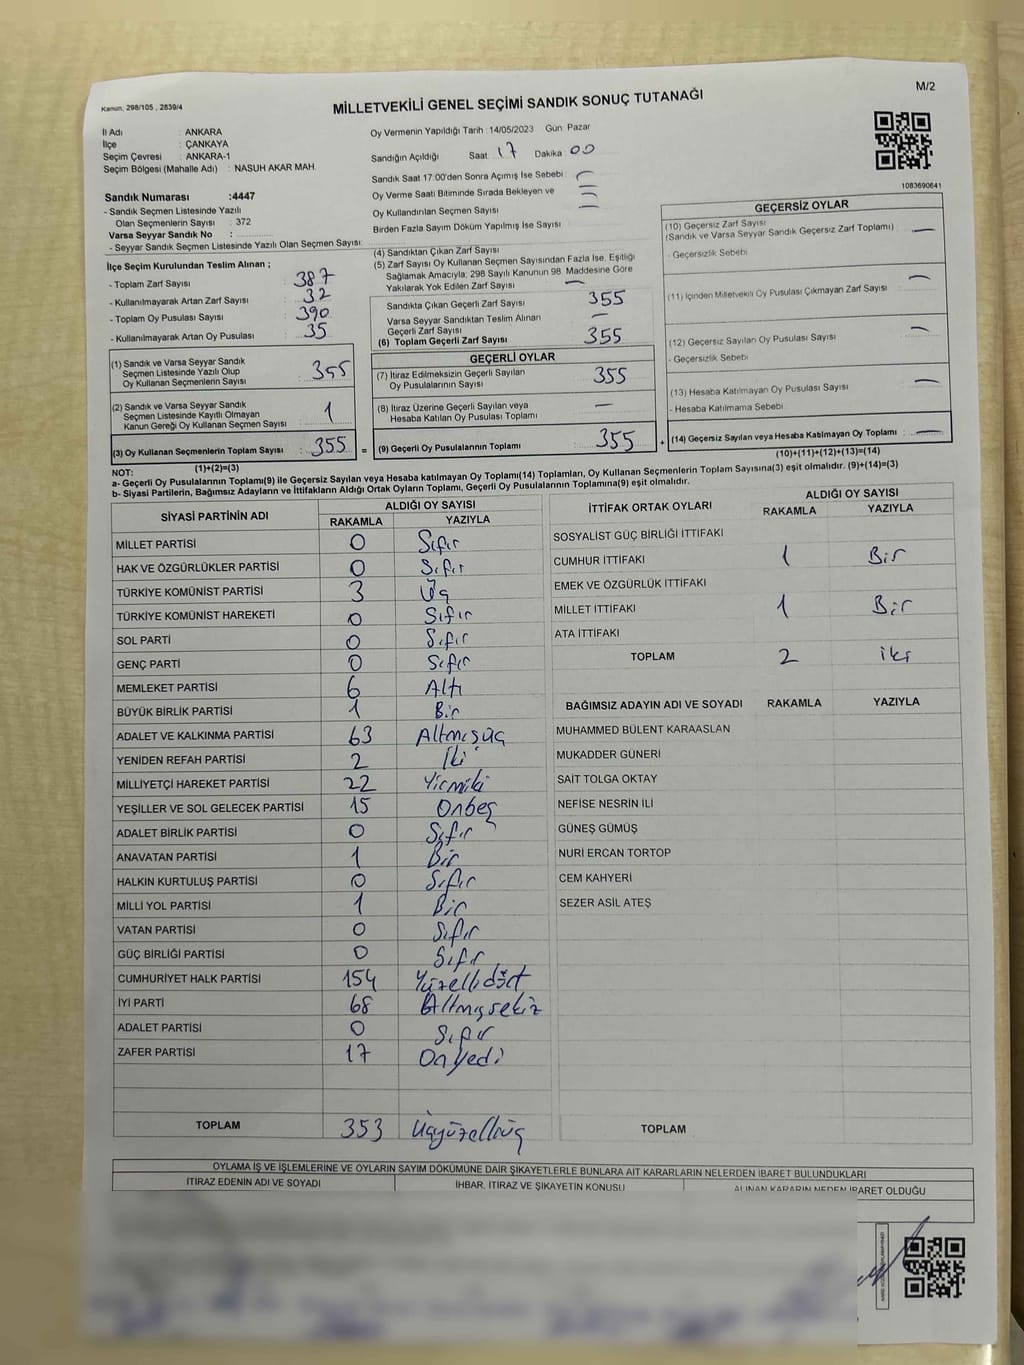 Kanun, 298/105 , 2839/4
MİLLETVEKİLİ GENEL SEÇİMİ SANDIK SONUÇ TUTANAĞI
M/2
İl Adı : ANKARA
İlçe : ÇANKAYA
Seçim Çevresi : ANKARA-1
Seçim Bölgesi (Mahalle Adı) : NASUH AKAR MAH.
Sandık Numarası :4447
- Sandık Seçmen Listesinde Yazılı
Olan Seçmenlerin Sayısı : 372
Varsa Seyyar Sandık No :
- Seyyar Sandık Seçmen Listesinde Yazılı Olan Seçmen Sayısı:
Oy Vermenin Yapıldığı Tarih :14/05/2023 Gün Pazar
Sandığın Açıldığı Saat 17 Dakika 00
Sandık Saat 17:00'den Sonra Açımış İse Sebebi
Oy Verme Saati Bitiminde Sırada Bekleyen ve
Oy Kullandırılan Seçmen Sayısı
Birden Fazla Sayım Döküm Yapılmış İse Sayısı
1083690641
İlçe Seçim Kurulundan Teslim Alınan ;
- Toplam Zarf Sayısı : 387
- Kullanılmayarak Artan Zarf Sayısı : 32
- Toplam Oy Pusulası Sayısı : 390
- Kullanılmayarak Artan Oy Pusulası : 35
(1) Sandık ve Varsa Seyyar Sandık
Seçmen Listesinde Yazılı Olup
Oy Kullanan Seçmenlerin Sayısı :
(2) Sandık ve Varsa Seyyar Sandık
Seçmen Listesinde Kayıtlı Olmayan
Kanun Gereği Oy Kullanan Seçmen Sayısı : 1
(3) Oy Kullanan Seçmenlerin Toplam Sayısı : 355
(1)+(2)=(3)
(4) Sandıktan Çıkan Zarf Sayısı
(5) Zarf Sayısı Oy Kullanan Seçmen Sayısından Fazla İse, Eşitliği
Sağlamak Amacıyla; 298 Sayılı Kanunun 98. Maddesine Göre
Yakılarak Yok Edilen Zarf Sayısı —
Sandıkta Çıkan Geçerli Zarf Sayısı 355
Varsa Seyyar Sandıktan Teslim Alınan
Geçerli Zarf Sayısı —
(6) Toplam Geçerli Zarf Sayısı 355
GEÇERLİ OYLAR
(7) İtiraz Edilmeksizin Geçerli Sayılan
Oy Pusulalarının Sayısı 355
(8) İtiraz Üzerine Geçerli Sayılan veya
Hesaba Katılan Oy Pusulası Toplamı —
= (9) Geçerli Oy Pusulalarının Toplamı 355 +
GEÇERSİZ OYLAR
(10) Geçersiz Zarf Sayısı
(Sandık ve Varsa Seyyar Sandık Geçersiz Zarf Toplamı) —
- Geçersizlik Sebebi
(11) İçinden Milletvekili Oy Pusulası Çıkmayan Zarf Sayısı —
(12) Geçersiz Sayılan Oy Pusulası Sayısı —
- Geçersizlik Sebebi
(13) Hesaba Katılmayan Oy Pusulası Sayısı —
- Hesaba Katılmama Sebebi
(14) Geçersiz Sayılan veya Hesaba Katılmayan Oy Toplamı —
(10)+(11)+(12)+(13)=(14)
NOT:
a- Geçerli Oy Pusulalarının Toplamı(9) ile Geçersiz Sayılan veya Hesaba katılmayan Oy Toplamı(14) Toplamları, Oy Kullanan Seçmenlerin Toplam Sayısına(3) eşit olmalıdır. (9)+(14)=(3)
b- Siyasi Partilerin, Bağımsız Adayların ve İttifakların Aldığı Ortak Oyların Toplamı, Geçerli Oy Pusulalarının Toplamına(9) eşit olmalıdır.
SİYASİ PARTİNİN ADI ALDIĞI OY SAYISI
RAKAMLA YAZIYLA
MİLLET PARTİSİ 0 Sıfır
HAK VE ÖZGÜRLÜKLER PARTİSİ 0 Sıfır
TÜRKİYE KOMÜNİST PARTİSİ 3 Üç
TÜRKİYE KOMÜNİST HAREKETİ 0 Sıfır
SOL PARTİ 0 Sıfır
GENÇ PARTİ 0 Sıfır
MEMLEKET PARTİSİ 6 Altı
BÜYÜK BİRLİK PARTİSİ 1 Bir
ADALET VE KALKINMA PARTİSİ 63 Altmışüç
YENİDEN REFAH PARTİSİ 2 İki
MİLLİYETÇİ HAREKET PARTİSİ 22 Yirmiki
YEŞİLLER VE SOL GELECEK PARTİSİ 15 Onbeş
ADALET BİRLİK PARTİSİ 0 Sıfır
ANAVATAN PARTİSİ 1 Bir
HALKIN KURTULUŞ PARTİSİ 0 Sıfır
MİLLİ YOL PARTİSİ 1 Bir
VATAN PARTİSİ 0 Sıfır
GÜÇ BİRLİĞİ PARTİSİ 0 Sıfır
CUMHURİYET HALK PARTİSİ 154 Yüzellidört
İYİ PARTİ 68 Altmışsekiz
ADALET PARTİSİ 0 Sıfır
ZAFER PARTİSİ 17 Onyedi
TOPLAM 353 Üçyüzelliüç
İTTİFAK ORTAK OYLARI ALDIĞI OY SAYISI
RAKAMLA YAZIYLA
SOSYALİST GÜÇ BİRLİĞİ İTTİFAKI
CUMHUR İTTİFAKI 1 Bir
EMEK VE ÖZGÜRLÜK İTTİFAKI
MİLLET İTTİFAKI 1 Bir
ATA İTTİFAKI
TOPLAM 2 iki
BAĞIMSIZ ADAYIN ADI VE SOYADI RAKAMLA YAZIYLA
MUHAMMED BÜLENT KARAASLAN
MUKADDER GÜNERİ
SAİT TOLGA OKTAY
NEFİSE NESRİN İLİ
GÜNEŞ GÜMÜŞ
NURİ ERCAN TORTOP
CEM KAHYERİ
SEZER ASİL ATEŞ
TOPLAM
OYLAMA İŞ VE İŞLEMLERİNE VE OYLARIN SAYIM DÖKÜMÜNE DAİR ŞİKAYETLERLE BUNLARA AİT KARARLARIN NELERDEN İBARET BULUNDUKLARI
İTİRAZ EDENİN ADI VE SOYADI İHBAR, İTİRAZ VE ŞİKAYETİN KONUSU ALINAN KARARIN NEDEN İBARET OLDUĞU